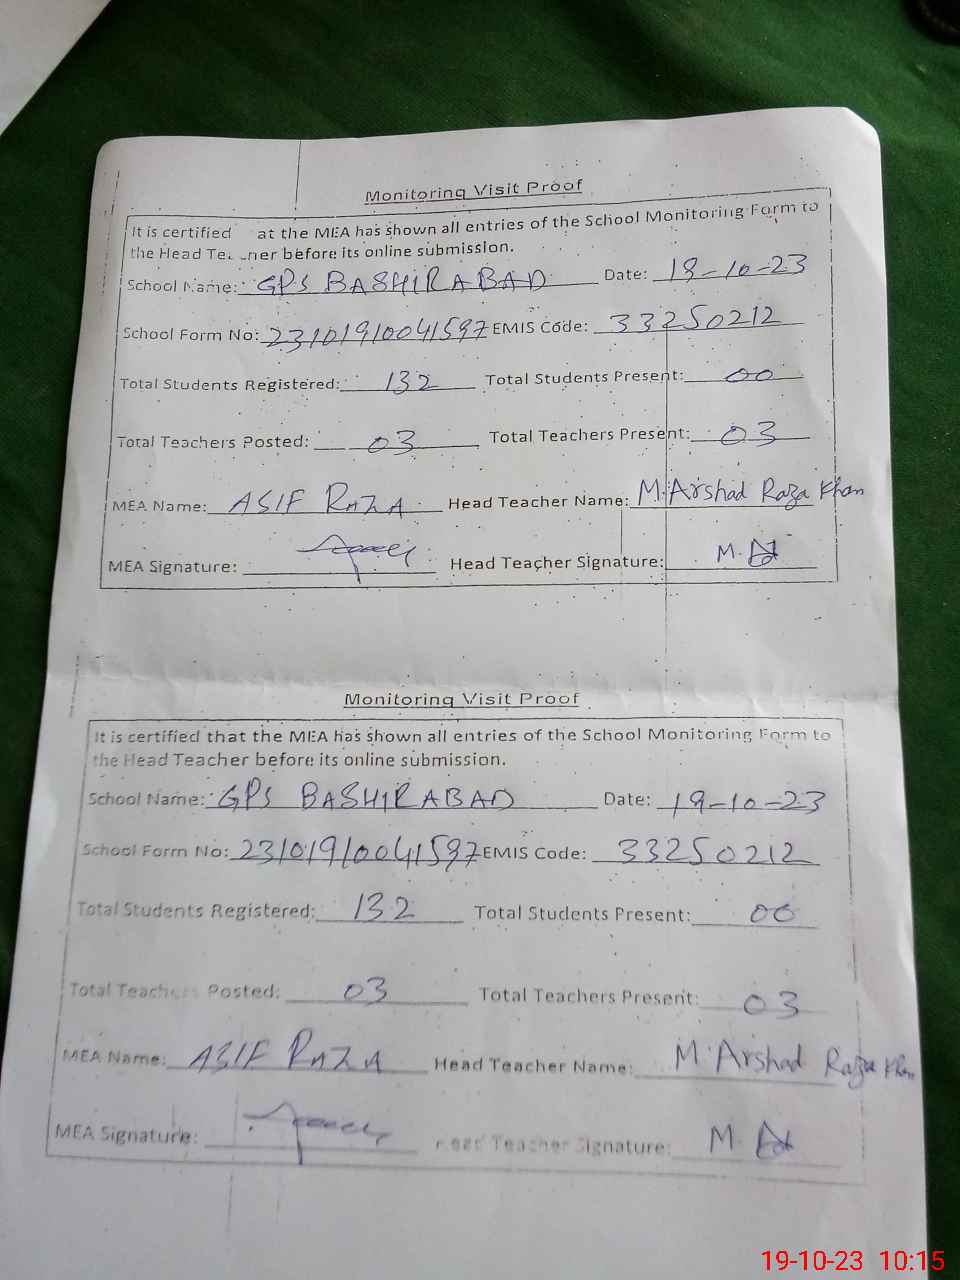 Monitoring Visit Proof
It is certified at the MEA has shown all entries of the School Monitoring Form to
the Head before its online submission.
School Name: GPS BASHIRABAD Date: 19-10-23
School Form No: 23101910041597 EMIS Code: 33250212
Total Students Registered: 132 Total Students Present: 00
Total Teachers Posted: 03 Total Teachers Present: 03
MEA Name: ASIF RAZA Head Teacher Name: M.Arshad Raza Khan
MEA Signature: Head Teacher Signature: M.
Monitoring Visit Proof
It is certified that the MEA has shown all entries of the School Monitoring Form to
the Head Teacher before its online submission.
School Name: GPS BASHIRABAD Date: 19-10-23
School Form No: 23101910041597 EMIS Code: 33250212
Total Students Registered: 132 Total Students Present: 00
Total Teachers Posted: 03 Total Teachers Present: 03
MEA Name: ASIF RAZA Head Teacher Name: M. Arshad Raza Khan
MEA Signature: Head Teacher Signature: M.
19-10-23 10:15